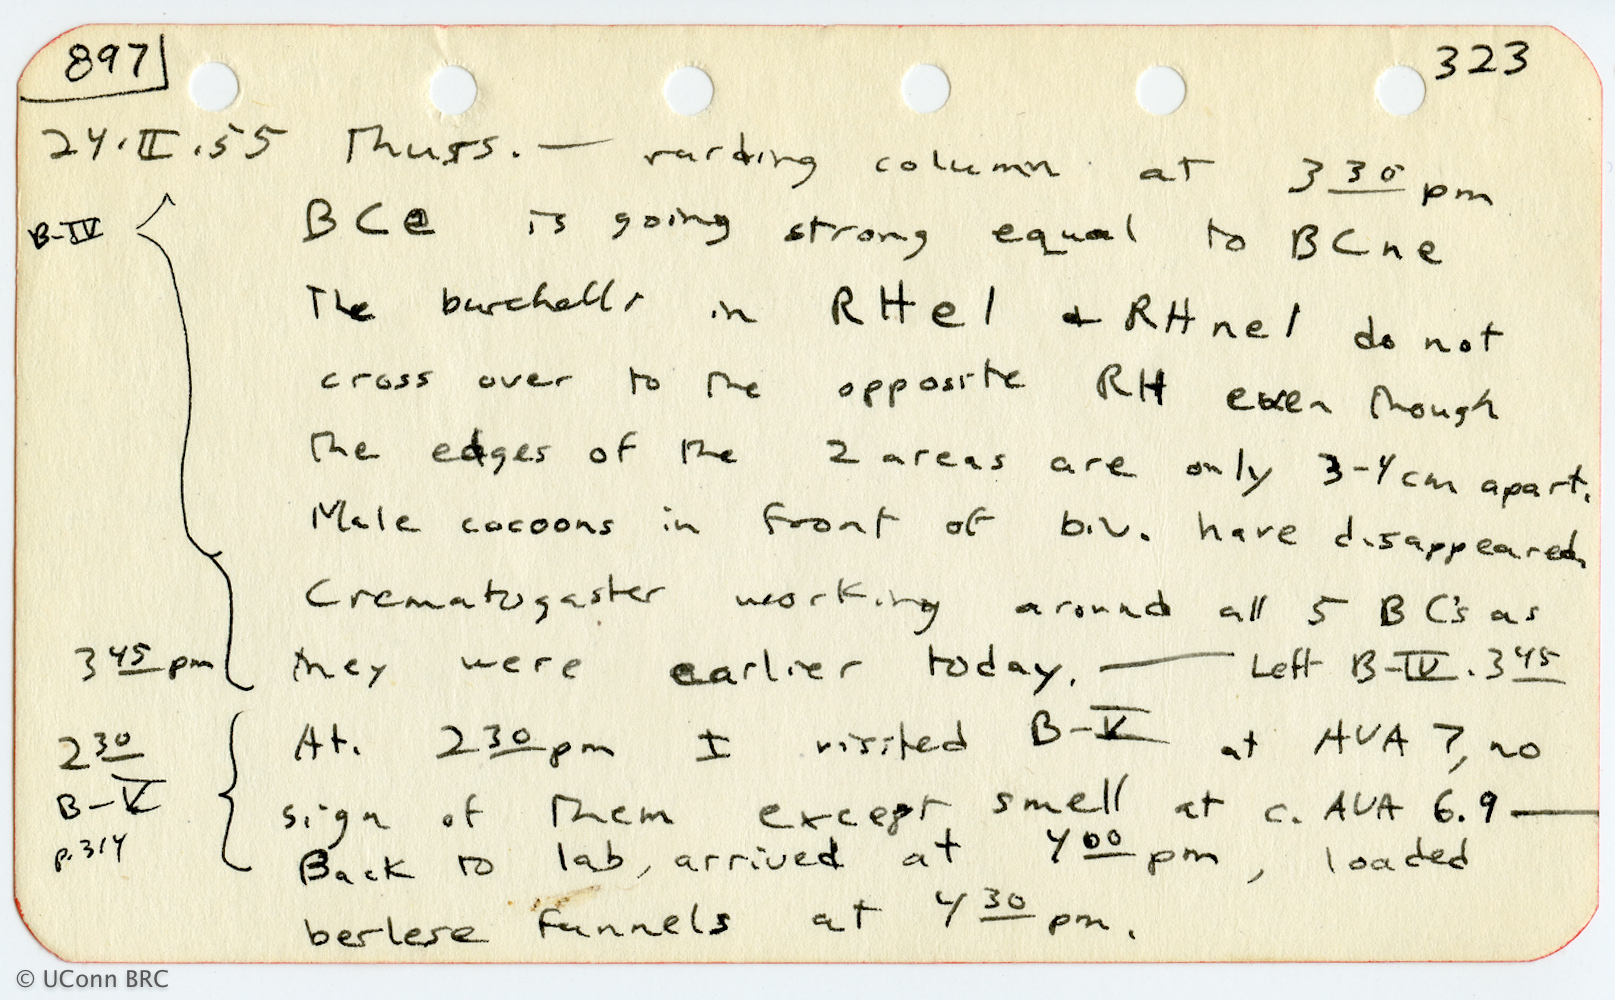 897 323
24.II.55 Thurs. — raiding column at 3 30 pm
B-IV BCe is going strong equal to BCne
The burchelli in RHe1 + RHne1 do not
cross over to the opposite RH even though
the edges of the 2 areas are only 3-4 cm apart.
Male cocoons in front of biv. have disappeared.
Crematogaster working around all 5 BC's as
3 45 pm they were earlier today. — Left B-IV. 3 45
2 30 At. 2 30 pm I visited B-V at AVA 7, no
B-V sign of them except smell at c. AVA 6.9 —
p.314 Back to lab, arrived at 4 00 pm, loaded
berlese funnels at 4 30 pm.
© UConn BRC